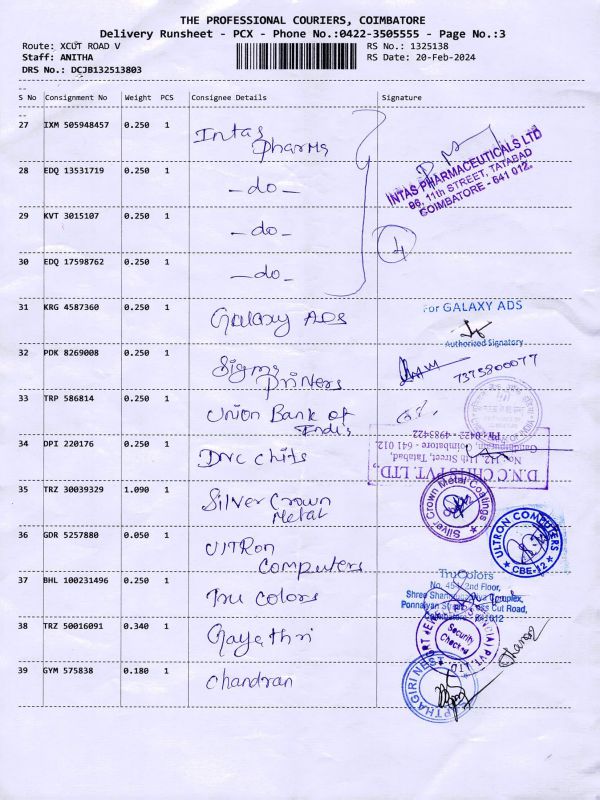 THE PROFESSIONAL COURIERS, COIMBATORE
Delivery Runsheet - PCX - Phone No.:0422-3505555 - Page No.:3
Route: XCUT ROAD V
RS No.: 1325138
Staff: ANITHA
RS Date: 20-Feb-2024
DRS No.: DCJB132513803
S No Consignment No Weight PCS Consignee Details Signature
27 IXM 505948457 0.250 1 Intas Pharms
INTAS PHARMACEUTICALS LTD
86, 11th STREET, TATABAD
COIMBATORE - 641 012.
28 EDQ 13531719 0.250 1 -do-
29 KVT 3015107 0.250 1 -do-
4
30 EDQ 17598762 0.250 1 -do-
31 KRG 4587360 0.250 1 Galaxy ADS
For GALAXY ADS
Authorized Signatory
32 PDK 8269008 0.250 1 Sigma Printers
7375800077
33 TRP 586814 0.250 1 Union Bank of India
34 DPI 220176 0.250 1 DNC Chits
D.N.C CHITS PVT. LTD.,
No. 112, 11th Street, Tatabad,
Gandhipuram, Coimbatore - 641 012.
PH : 0422 - 4983422
35 TRZ 30039329 1.090 1 Silver Crown Metal
Silver Crown Metal Coatings
36 GDR 5257880 0.050 1 UITRon Computers
ULTRON COMPUTERS
CBE-12
37 BHL 100231496 0.250 1 Tru Colors
TruColors
2nd Floor,
Complex,
Ponnaiyan Street, Cross Cut Road,
Coimbatore - 641012
38 TRZ 50016091 0.340 1 Gayathri
Security
Checked
PVT. LTD.
39 GYM 575838 0.180 1 Chandran